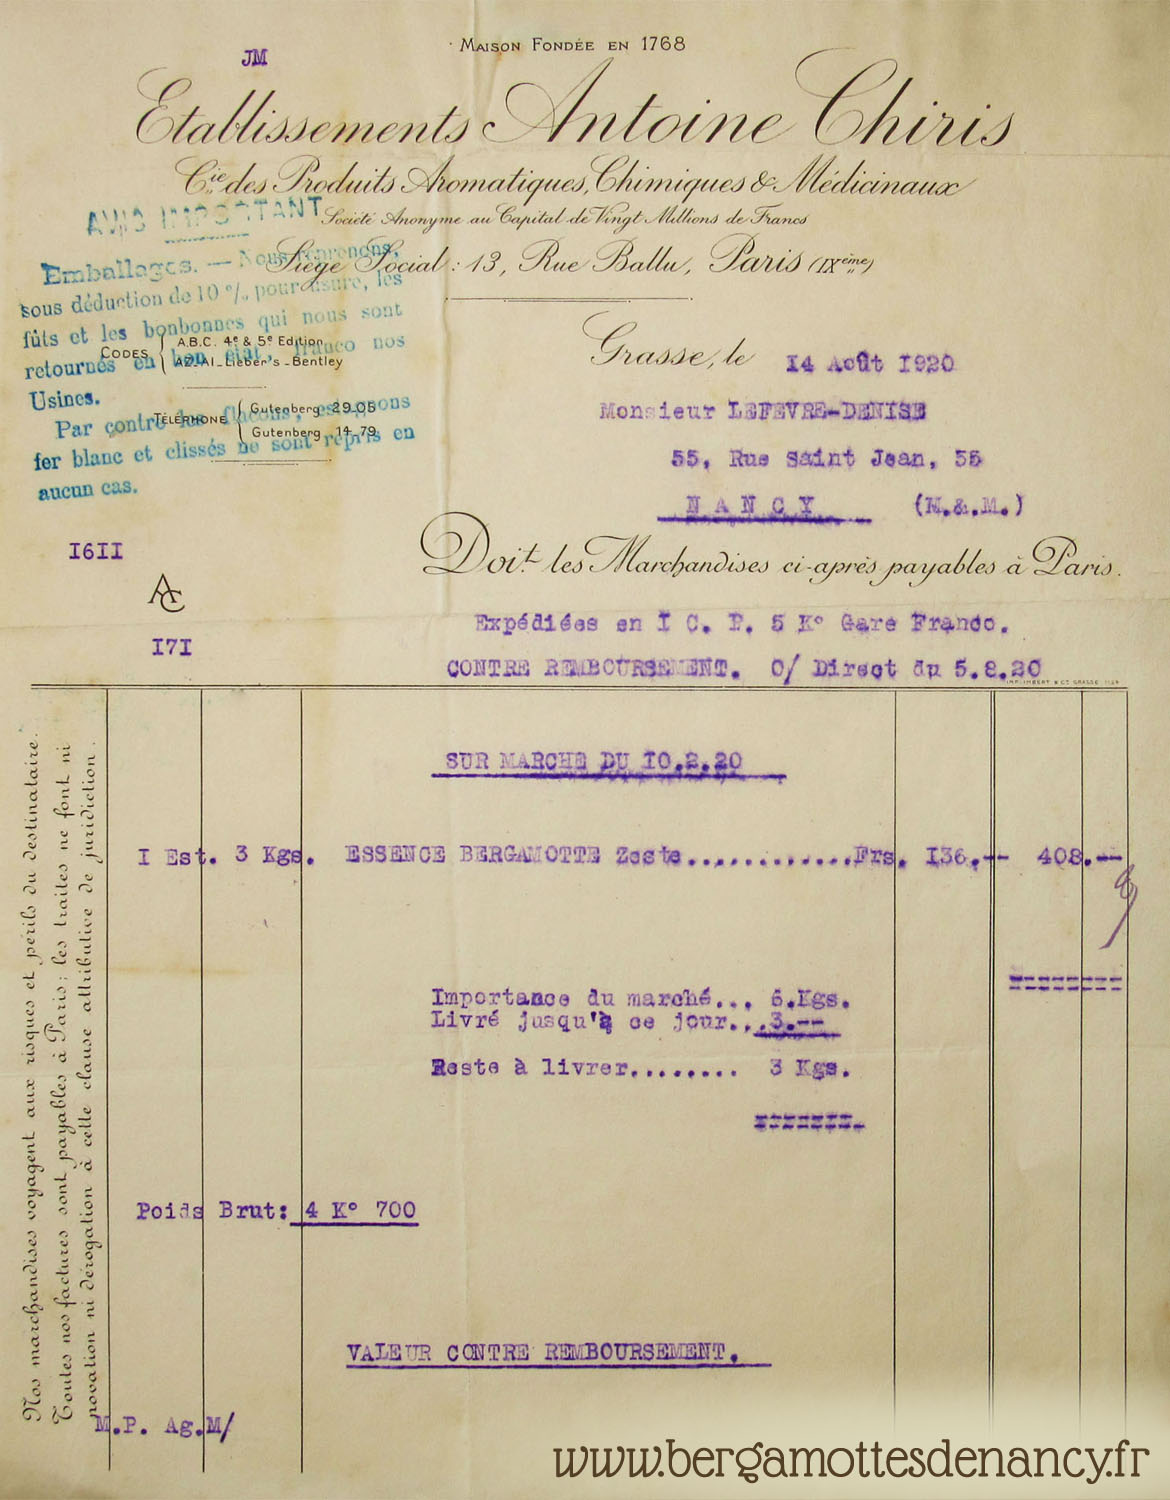 JM
Maison Fondée en 1768
Etablissements Antoine Chiris
Cie des Produits Aromatiques, Chimiques & Médicinaux
Société Anonyme au Capital de Vingt Millions de Francs
Siège Social : 13, Rue Ballu, Paris (IXème)
AVIS IMPORTANT
Emballages. — Nous reprenons,
sous déduction de 10 % pour usure, les
fûts et les bonbonnes qui nous sont
retournés en bon état, franco nos
Usines.
Par contre les flacons, estagnons
fer blanc et clissés ne sont repris en
aucun cas.
Codes A.B.C. 4e & 5e Edition
AZ_Al_Lieber's_Bentley
Téléphone Gutenberg 29-05
Gutenberg 14-79
Grasse, le 14 Août 1920
Monsieur LEFEVRE-DENISE
55, Rue Saint Jean, 55
NANCY (M.&.M.)
1611
AC
171
Doit les Marchandises ci-après payables à Paris.
Expédiées en I C. P. 5 K° Gare Franco.
CONTRE REMBOURSEMENT. O/ Direct du 5.8.20
SUR MARCHE DU 10.2.20
I Est. 3 Kgs. ESSENCE BERGAMOTTE Zeste............Frs. 136.-- 408.--
Importance du marché... 6.Kgs.
Livré jusqu'à ce jour...3.--
Reste à livrer........ 3 Kgs.
Poids Brut: 4 K° 700
VALEUR CONTRE REMBOURSEMENT.
M.P. Ag.M/
Nos marchandises voyagent aux risques et périls du destinataire.
Toutes nos factures sont payables à Paris; les traites ne font ni
novation ni dérogation à cette clause attributive de juridiction.
www.bergamottesdenancy.fr